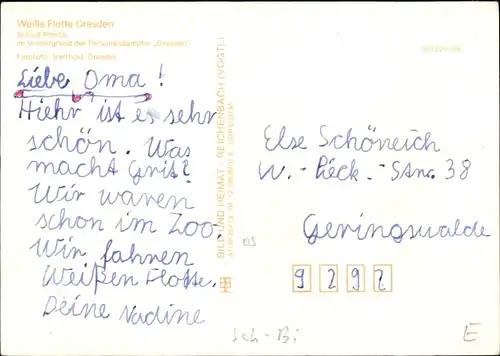 Weiße Flotte Dresden
Schloß Pillnitz
im Vordergrund der Personendampfer „Dresden"
Farbfoto: Berthold, Dresden
Liebe Oma!
Hiehr ist es sehr
schön. Was
macht Grit?
Wir waren
schon im Zoo.
Wir fahren
Weißen Flotte.
Deine Nadine
BILD UND HEIMAT · REICHENBACH (VOGTL)
Else Schöneich
W.-Pieck.-Stnr. 38
Geringswalde
9292
DS
Sch-Bi
E